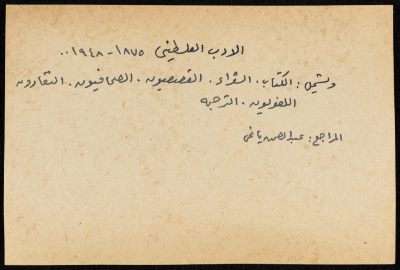 الادب الفلسطيني ١٨٧٥ - ١٩٤٨ ..
ويشمل : الكتاب . الشعراء . القصصيون . الصحافيون . النقادون
اللغويون . الترجمه
المراجع : عبدالرحمن ياغي